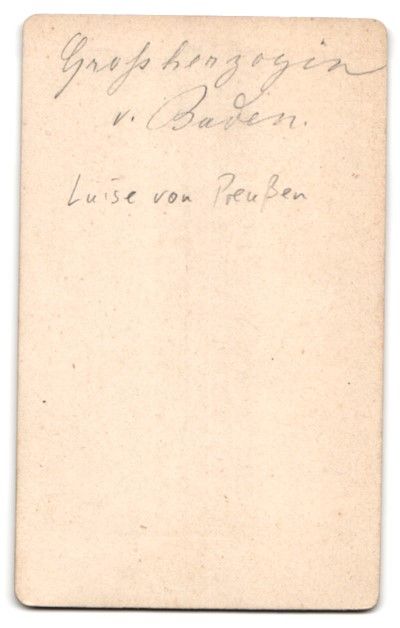 Großherzogin
v. Baden.
Luise von Preußen